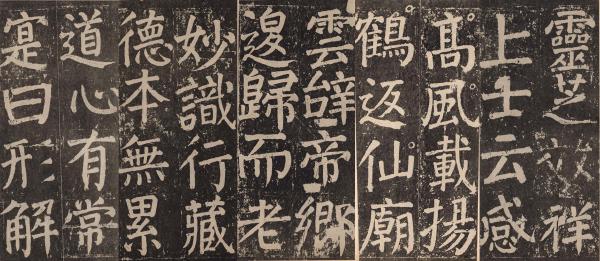 靈芝效祥
上士云感
髙風載揚
鶴返仙廟
雲辝帝鄉
歸而老
妙識行藏
德本無累
道心有常
寔曰形解